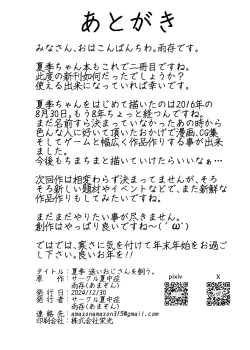 あとがき
みなさん、おはこんばんちわ。雨存です。
夏季ちゃん本もこれで二冊目ですね。
此度の新刊如何だったでしょうか？
使える出来になっていれば幸いです。
夏季ちゃんをはじめて描いたのは2016年の
8月30日。もう8年ちょっと経つんですね。
まだ名前すら決まっていなかったあの時から
色んな人に好いて頂いたおかげで漫画、CG集
そしてゲームと幅広く作品作りする事が出来
ました。
今後もちまちまと描いていけたらいいなぁ…
次回作は相変わらず決まってませんが、そろ
そろ新しい題材やイベントなどで、また新鮮な
作品作りもしてみたいですね。
まだまだやりたい事が尽きません。
創作はやっぱり良いですね～(´ω`)
ではでは、寒さに気を付けて年末年始をお過ご
し下さい。良いお年を!!
タイトル：夏季 遠いおじさんを飼う。
原 作：サークル夏中症
雨存(あまぞん)
発 行 日：2024/12/30
発 行 者：サークル夏中症
雨存(あまぞん)
連 絡 先：amazonamazon315@gmail.com
印刷会社：株式会社栄光
pixiv
X